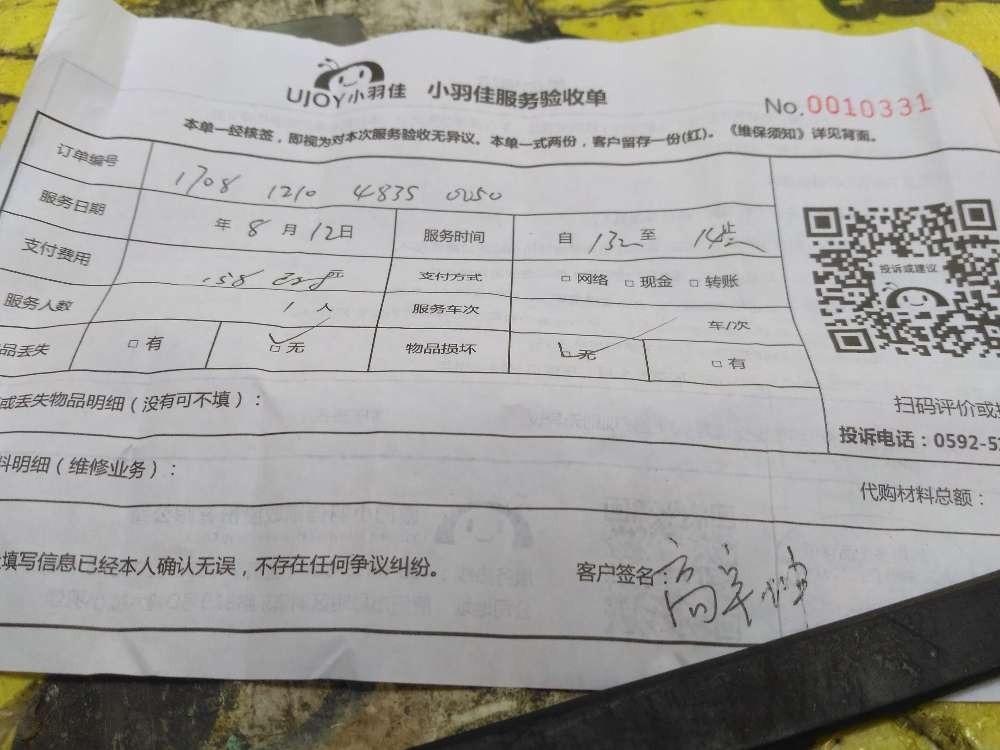 UJOY小羽佳 小羽佳服务验收单
No.0010331
本单一经核签，即视为对本次服务验收无异议。本单一式两份，客户留存一份(红)。《维保须知》详见背面。
订单编号 1708 1210 4835 0050
服务日期 年 8 月 12 日 服务时间 自 至
支付费用 158 元 支付方式 □ 网络 □ 现金 □ 转账
服务人数 1 人 服务车次 车/次
品丢失 □ 有 □ 无 物品损坏 □ 无 □ 有
投诉或建议
或丢失物品明细（没有可不填）：
扫码评价或
投诉电话：0592-5
料明细（维修业务）：
代购材料总额：
填写信息已经本人确认无误，不存在任何争议纠纷。 客户签名：